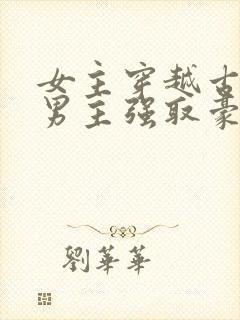 女主穿越古
男主强取豪
劉華華